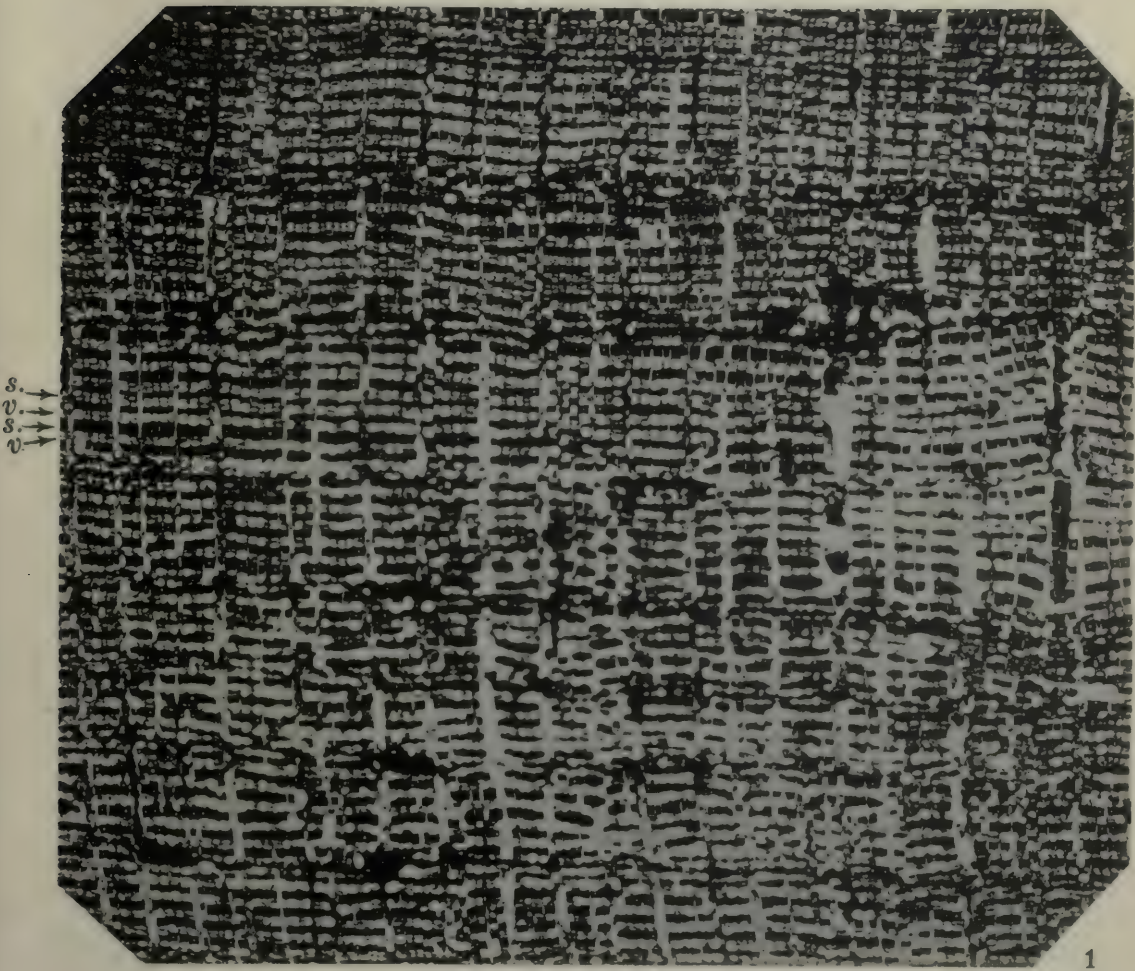 s.
v.
s.
v.
1